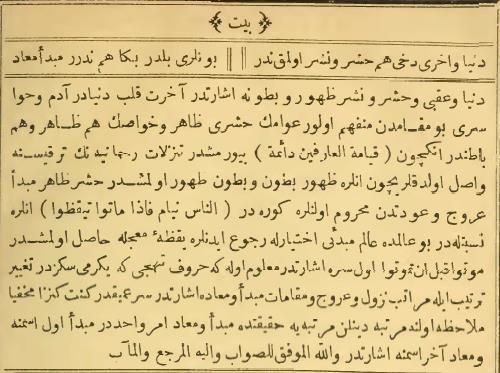 بيت
دنيا واخرى دخى هم حشر ونشر اولمق ندر بونلرى بلدر بكا هم ندرر مبدأ معاد
دنيا وعقبى وحشر ونشر ظهور وبطونه اشارتدر آخرت قلب دنيادر آدم وحوا
سرى بو مقامدن منفهم اولور عوامك حشرى ظاهر وخواصك هم ظاهر وهم
باطندر انكچون ( قيامة العارفين دائمة ) بيورمشدر تنزلات رحمانيه نك ترقيسنه
واصل اولدقلريچون انلره ظهور بطون وبطون ظهور اولمشدر حشر ظاهر مبدأ
عروج وعودتدن محروم اولنلره كوره در ( الناس نيام فاذا ماتوا تيقظوا ) انلره
نسبتله در بو عالمده عالم مبدئى اختيارله رجوع ايدنلره يقظهٔ معجله حاصل اولمشدر
موتوا قبل ان تموتوا اول سره اشارتدر معلوم اوله كه حروف تهجى كه يكرمى سكزدر تغيير
ترتيب ايله مراتب نزول وعروج ومقامات مبدأ ومعاده اشارتدر سر عميقدر كنت كنزا مخفيا
ملاحظه اولنه مرتبه دينلن مرتبه يه حقيقتده مبدأ ومعاد امر واحددر مبدأ اول اسمنه
ومعاد آخر اسمنه اشارتدر والله الموفق للصواب واليه المرجع والمآب